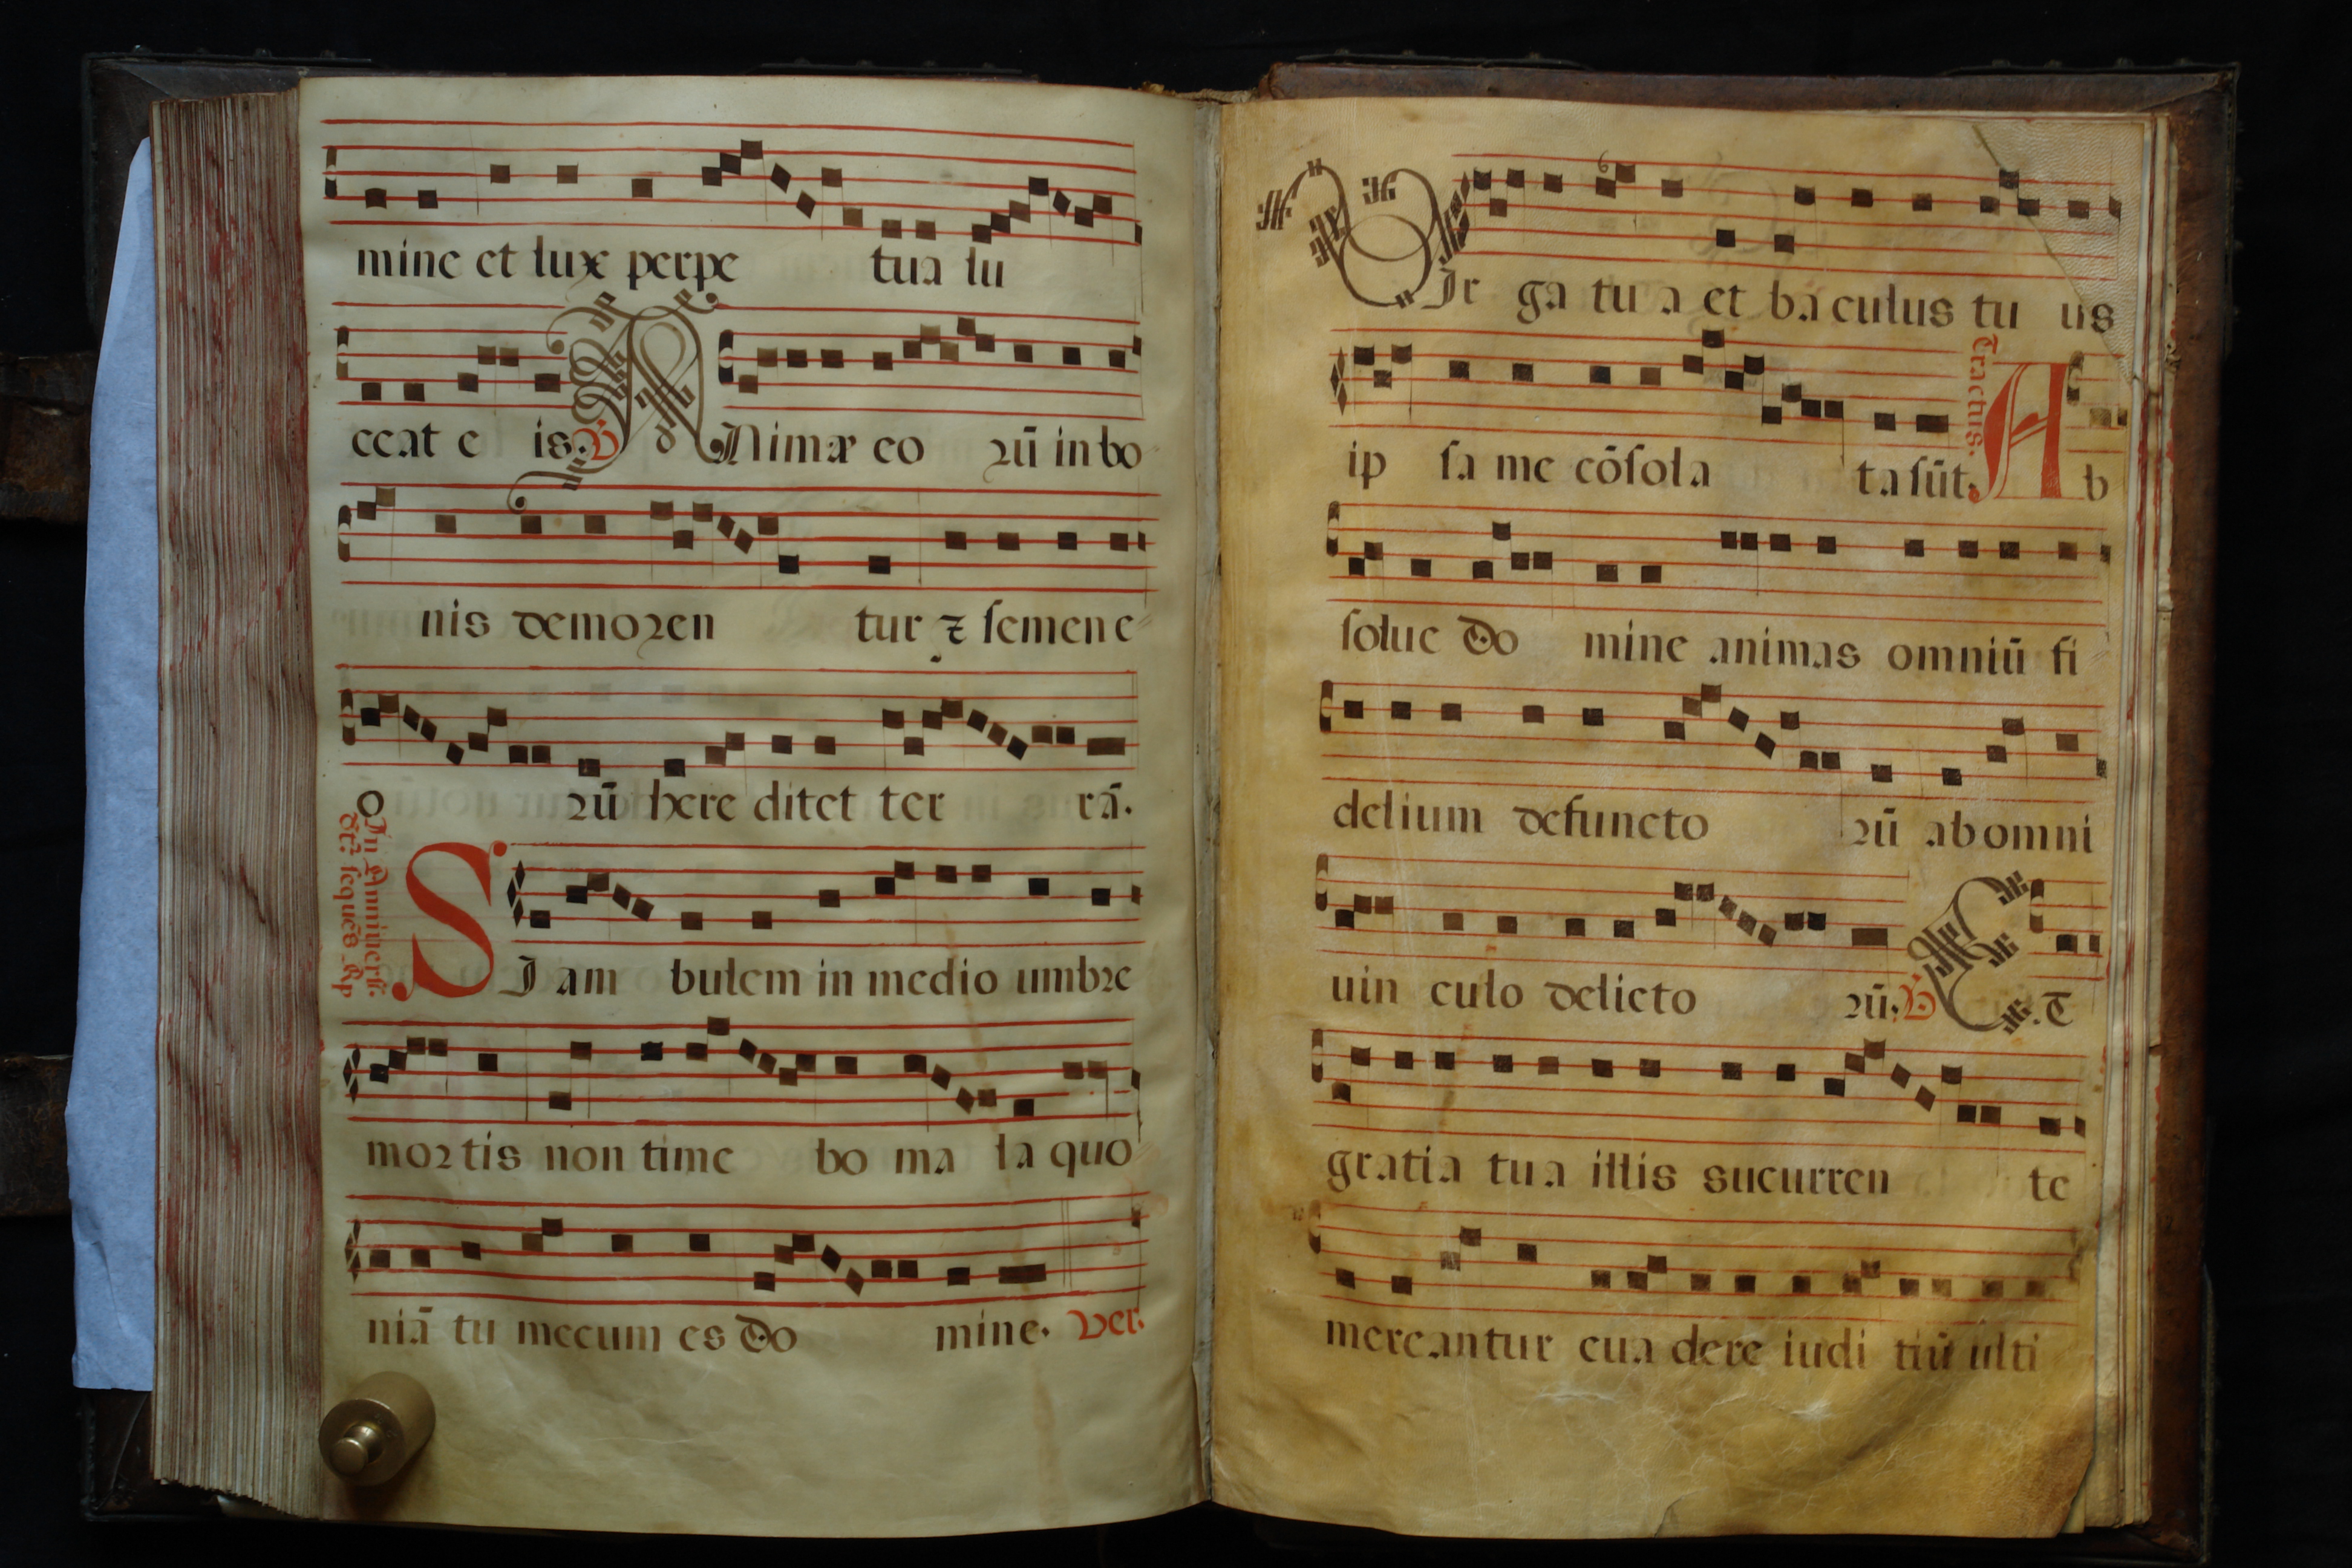 mine et lux perpe tua lu
ceat e is. V Animæ eo rū in bo
nis demoren tur ⁊ semen e
o rū here ditet ter rā.
SI am bulem in medio umbre
mortis non time bo ma la quo
niā tu mecum es do mine. Ver.
VIr ga tu a et ba culus tu us
ip sa me cōsola ta sūt. Tractus. A b
solue do mine animas omniū fi
delium defuncto rū ab omni
uin culo delicto rū. V E. T
gratia tua illis sucurren te
mereantur eua dere iudi tiū ulti